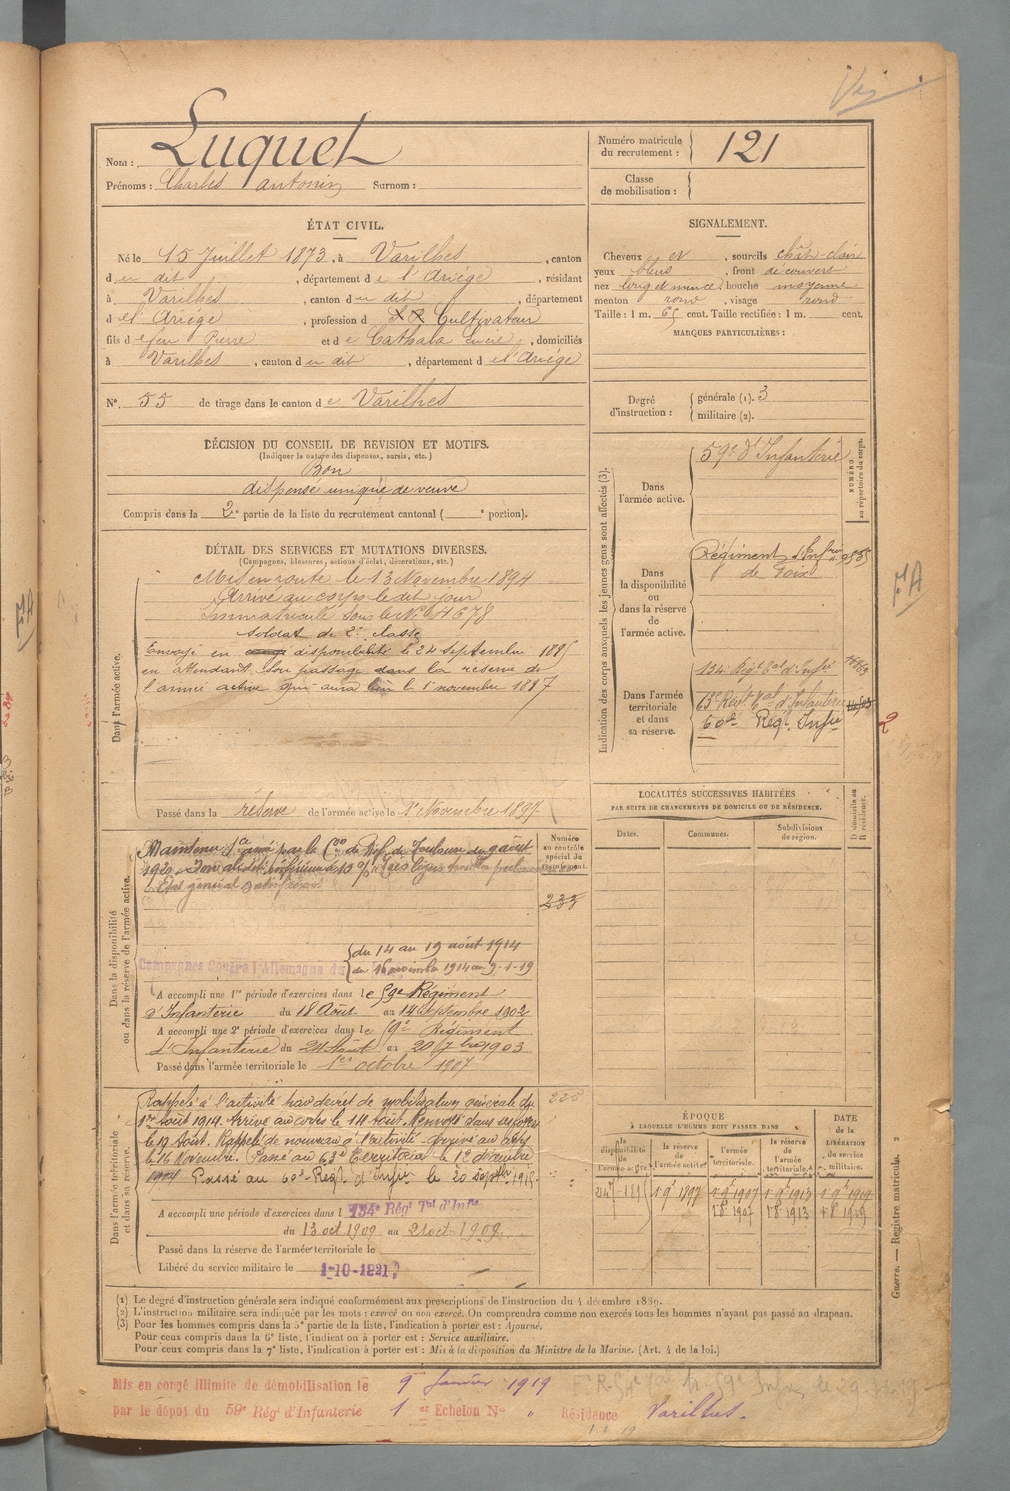 Nom : Luquet
Prénoms : Charles Antonin Surnom :
Numéro matricule du recrutement : 121
Classe de mobilisation :
ÉTAT CIVIL.
Né le 15 Juillet 1873, à Varilhes, canton
du dit, département de l'Ariége, résidant
à Varilhes, canton du dit, département
de l'Ariége, profession d Cultivateur
fils de feu Pierre et de Cathala Lucie, domiciliés
à Varilhes, canton du dit, département de l'Ariége
N° 55 de tirage dans le canton de Varilhes
SIGNALEMENT.
Cheveux et, sourcils chât-clair
yeux bleus, front découvert
nez long et mince, bouche moyenne
menton rond, visage rond
Taille : 1 m. 65 cent. Taille rectifiée : 1 m. cent.
MARQUES PARTICULIÈRES :
Degré d'instruction : générale (1). 3
militaire (2).
DÉCISION DU CONSEIL DE REVISION ET MOTIFS.
(Indiquer la nature des dispenses, sursis, etc.)
Bon
dispensé unique de veuve
Compris dans la 2e partie de la liste du recrutement cantonal ( e portion).
DÉTAIL DES SERVICES ET MUTATIONS DIVERSES.
(Campagnes, blessures, actions d'éclat, décorations, etc.)
Dans l'armée active.
Mis en route le 13 Novembre 1894
Arrivé au corps le dit jour
Immatriculé sous le N° 4678
soldat de 2e classe
Envoyé en disponibilité le 24 septembre 1895
en attendant son passage dans la réserve de
l'armée active qui aura lieu le 1er novembre 1897
Passé dans la réserve de l'armée active le 1er Novembre 1897
Indication des corps auxquels les jeunes gens sont affectés (3).
Dans l'armée active.
59e d'Infanterie
NUMÉRO au répertoire du corps.
Dans la disponibilité ou dans la réserve de l'armée active.
Régiment d'Infrie
de Foix
Dans l'armée territoriale et dans sa réserve.
134e Régt Tal d'Infie
63e Regt Tal d'Infanterie
60e Regt Infie
2
LOCALITÉS SUCCESSIVES HABITÉES
PAR SUITE DE CHANGEMENTS DE DOMICILE OU DE RÉSIDENCE.
Dates. Communes. Subdivisions de région. D domicile ou R résidence.
Dans la disponibilité ou dans la réserve de l'armée active.
Numéro au contrôle spécial du recrutement.
233
Campagnes contre l'Allemagne du
du 14 au 19 août 1914
du 16 novembre 1914 au 9-1-19
A accompli une 1re période d'exercices dans le 59e Régiment
d'Infanterie du 18 Août au 14 Septembre 1902
A accompli une 2e période d'exercices dans le 59e Régiment
d'Infanterie du 24 Août au 20 7bre 1903
Passé dans l'armée territoriale le 1er octobre 1907
Dans l'armée territoriale et dans sa réserve.
Rappelé à l'activité par décret de mobilisation générale du
1er Août 1914. Arrivé au corps le 14 Août. Renvoyé dans ses foyers
le 19 Août. Rappelé de nouveau à l'activité. Arrivé au corps
le 16 Novembre. Passé au 63e Territorial le 12 décembre
1914 Passé au 60e Regt. d'Infie le 20 Septbre 1915.
A accompli une période d'exercices dans l 134e Régt Tal d'Infie
du 13 oct 1909 au 21 oct 1909.
Passé dans la réserve de l'armée territoriale le
Libéré du service militaire le 1-10-1921
ÉPOQUE
À LAQUELLE L'HOMME DOIT PASSER DANS
la disponibilité de l'armée active
la réserve de l'armée active.
l'armée territoriale.
la réserve de l'armée territoriale.
DATE de la LIBÉRATION du service militaire.
(1) Le degré d'instruction générale sera indiqué conformément aux prescriptions de l'instruction du 4 décembre 1889.
(2) L'instruction militaire sera indiquée par les mots : exercé ou non exercé. On comprendra comme non exercés tous les hommes n'ayant pas passé au drapeau.
(3) Pour les hommes compris dans la 5e partie de la liste, l'indication à porter est : Ajourné.
Pour ceux compris dans la 6e liste, l'indication à porter est : Service auxiliaire.
Pour ceux compris dans la 7e liste, l'indication à porter est : Mis à la disposition du Ministre de la Marine. (Art. 4 de la loi.)
Guerre. — Registre matricule. 2
Mis en congé illimité de démobilisation le 9 Janvier 1919
par le dépot du 59e Régt d'Infanterie 1er Echelon N° " Résidence Varilhes.